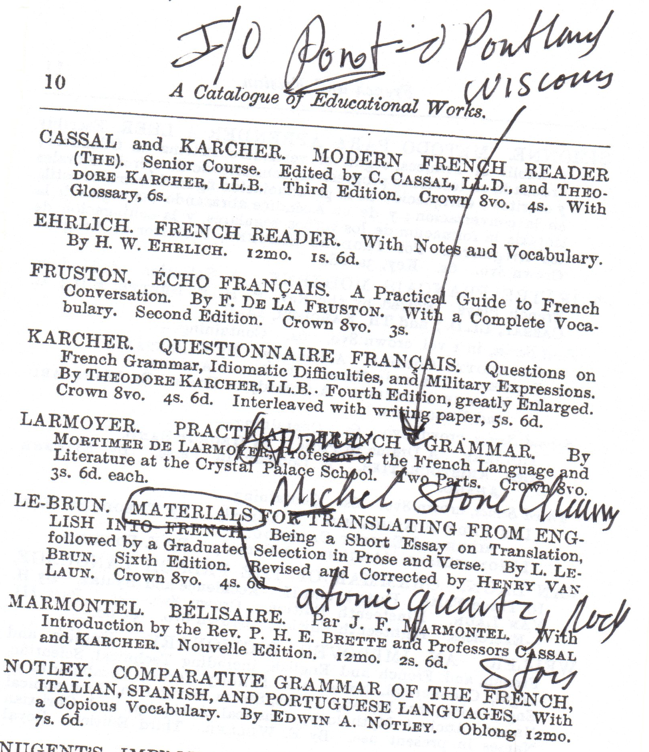 I/O
10
A Catalogue of Educational Works.
CASSAL and KARCHER. MODERN FRENCH READER
(THE). Senior Course. Edited by C. CASSAL, LL.D., and THEO-
DORE KARCHER, LL.B. Third Edition. Crown 8vo. 4s. With
Glossary, 6s.
EHRLICH. FRENCH READER. With Notes and Vocabulary.
By H. W. EHRLICH. 12mo. 1s. 6d.
FRUSTON. ÉCHO FRANÇAIS. A Practical Guide to French
Conversation. By F. DE LA FRUSTON. With a Complete Voca-
bulary. Second Edition. Crown 8vo. 3s.
KARCHER. QUESTIONNAIRE FRANÇAIS. Questions on
French Grammar, Idiomatic Difficulties, and Military Expressions.
By THEODORE KARCHER, LL.B. Fourth Edition, greatly Enlarged.
Crown 8vo. 4s. 6d. Interleaved with writing paper, 5s. 6d.
LARMOYER. PRACTICAL FRENCH GRAMMAR. By
MORTIMER DE LARMOYER, Professor of the French Language and
Literature at the Crystal Palace School. Two Parts. Crown 8vo.
3s. 6d. each.
Michel Stone
LE-BRUN. MATERIALS FOR TRANSLATING FROM ENG-
LISH INTO FRENCH. Being a Short Essay on Translation,
followed by a Graduated Selection in Prose and Verse. By L. LE-
BRUN. Sixth Edition. Revised and Corrected by HENRY VAN
LAUN. Crown 8vo. 4s. 6d.
atomic quartz
MARMONTEL. BÉLISAIRE. Par J. F. MARMONTEL. With
Introduction by the Rev. P. H. E. BRETTE and Professors CASSAL
and KARCHER. Nouvelle Edition. 12mo. 2s. 6d.
NOTLEY. COMPARATIVE GRAMMAR OF THE FRENCH,
ITALIAN, SPANISH, AND PORTUGUESE LANGUAGES. With
a Copious Vocabulary. By EDWIN A. NOTLEY. Oblong 12mo.
7s. 6d.